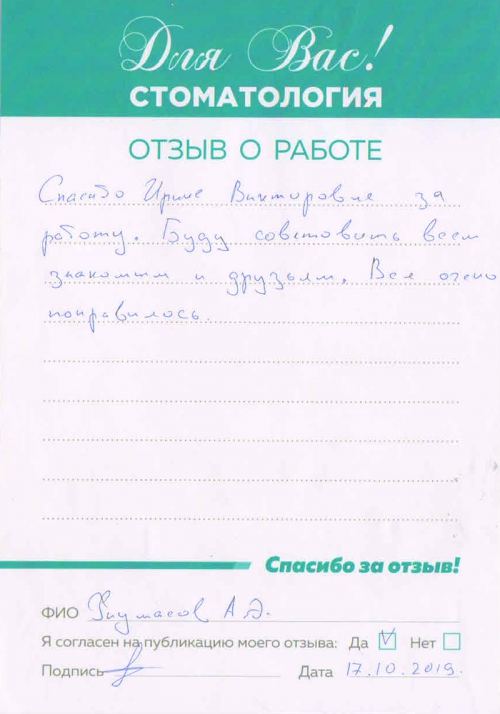 Для Вас!
СТОМАТОЛОГИЯ
ОТЗЫВ О РАБОТЕ
Спасибо Ирине Викторовне за
работу. Буду советовать всем
знакомым и друзьям. Все очень
понравилось.
Спасибо за отзыв!
ФИО А.Э.
Я согласен на публикацию моего отзыва: Да ☑ Нет ☐
Подпись Дата 17.10.2019.